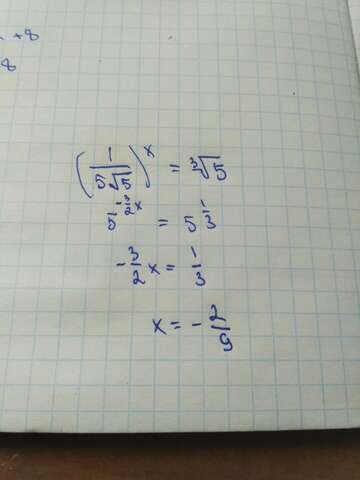 +8
8
(1/(5√5))^x = ∛5
5^(-3/2 x) = 5^(1/3)
-3/2 x = 1/3
x = -2/9